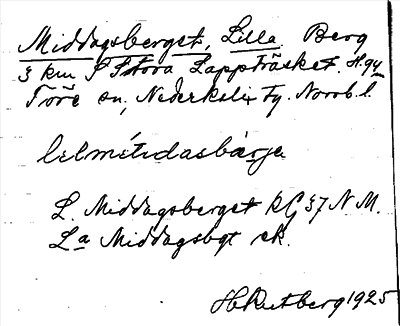 Middagsberget, Lilla Berg
3 km S Stora Lappträsket. Hqy
Töre sn, Nederkalix tg. Norrb. l.
lilmítidasbärje
L. Middagsberget kG 37 N M.
La Middagsbgt ek.
H Rutberg 1925